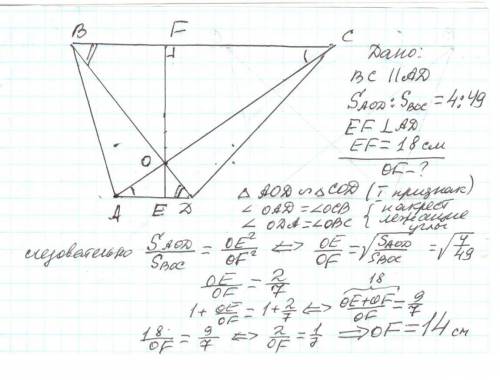 B F C
O
A E D
Дано:
BC || AD
S_AOD : S_BOC = 4:49
EF ⊥ AD
EF = 18 см
OF - ?
△ AOD ∽ △ COD (I признак)
∠ OAD = ∠OCB { накрест
∠ ODA = ∠OBC { лежащие углы
следовательно S_AOD/S_BOC = OE²/OF² ⇔ OE/OF = √(S_AOD/S_BOC) = √(4/49)
OE/OF = 2/7
1 + OE/OF = 1 + 2/7 ⇔ (OE+OF)/OF = 9/7
18
18/OF = 9/7 ⇔ 2/OF = 1/7 ⇒ OF = 14 см